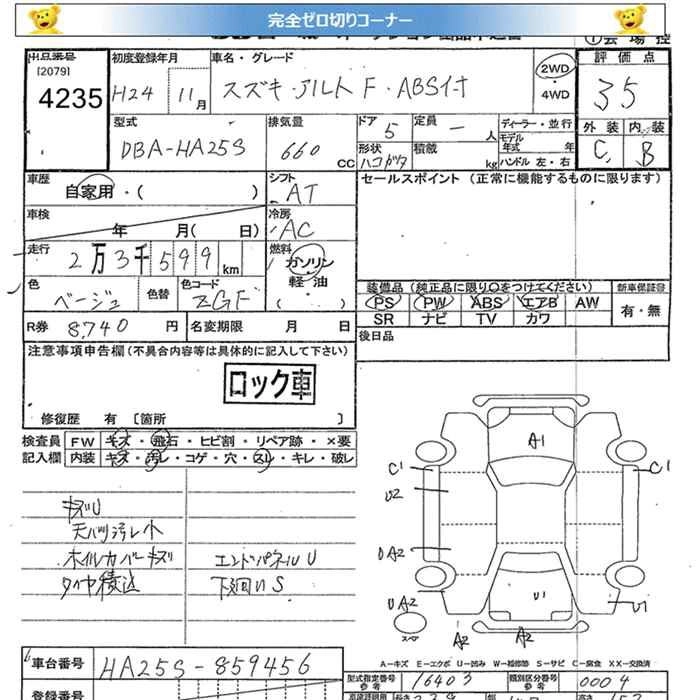 完全ゼロ切りコーナー
出品番号
[2079]
4235
初度登録年月
H24 11月
車名・グレード
スズキ・アルト F・ABS付
2WD
4WD
評価点
35
外装 内装
C B
型式
DBA-HA25S
排気量
660 CC
ドア
5
形状
ハコガタ
定員
一 人
積載
kg
ディーラー・並行
モデル
年式 年
ハンドル 左・右
車歴
自家用・( )
シフト
AT
セールスポイント (正常に機能するものに限ります)
車検
年 月( 日)
冷房
AC
走行
2万3千599km
燃料
ガソリン
軽油
( )
色
ベージュ
色替
色コード
ZGF
装備品 (純正品に限り○をつけてください)
PS PW ABS エアB AW
SR ナビ TV カワ
新車保証書
有・無
R券 8,740 円
名変期限 月 日
後日品
注意事項申告欄 (不具合内容等は具体的に記入して下さい)
ロック車
修復歴 有 [箇所 ]
検査員 FW キズ・飛石・ヒビ割・リペア跡・×要
記入欄 内装 キズ・汚レ・コゲ・穴・スレ・キレ・破レ
キズU
天バリ汚レ小
ホイルカバーキズ
タイヤ積込
エンドパネルU
下廻りS
A1
C1
C1
U2
UA2
UA2
U1
U1
スペア
A2
A2
A-キズ E-エクボ U-凹み W-補修跡 S-サビ C-腐食 XX-交換済
車台番号
HA25S-859456
型式指定番号
参考
16403
類別区分番号
参考
0004
登録番号